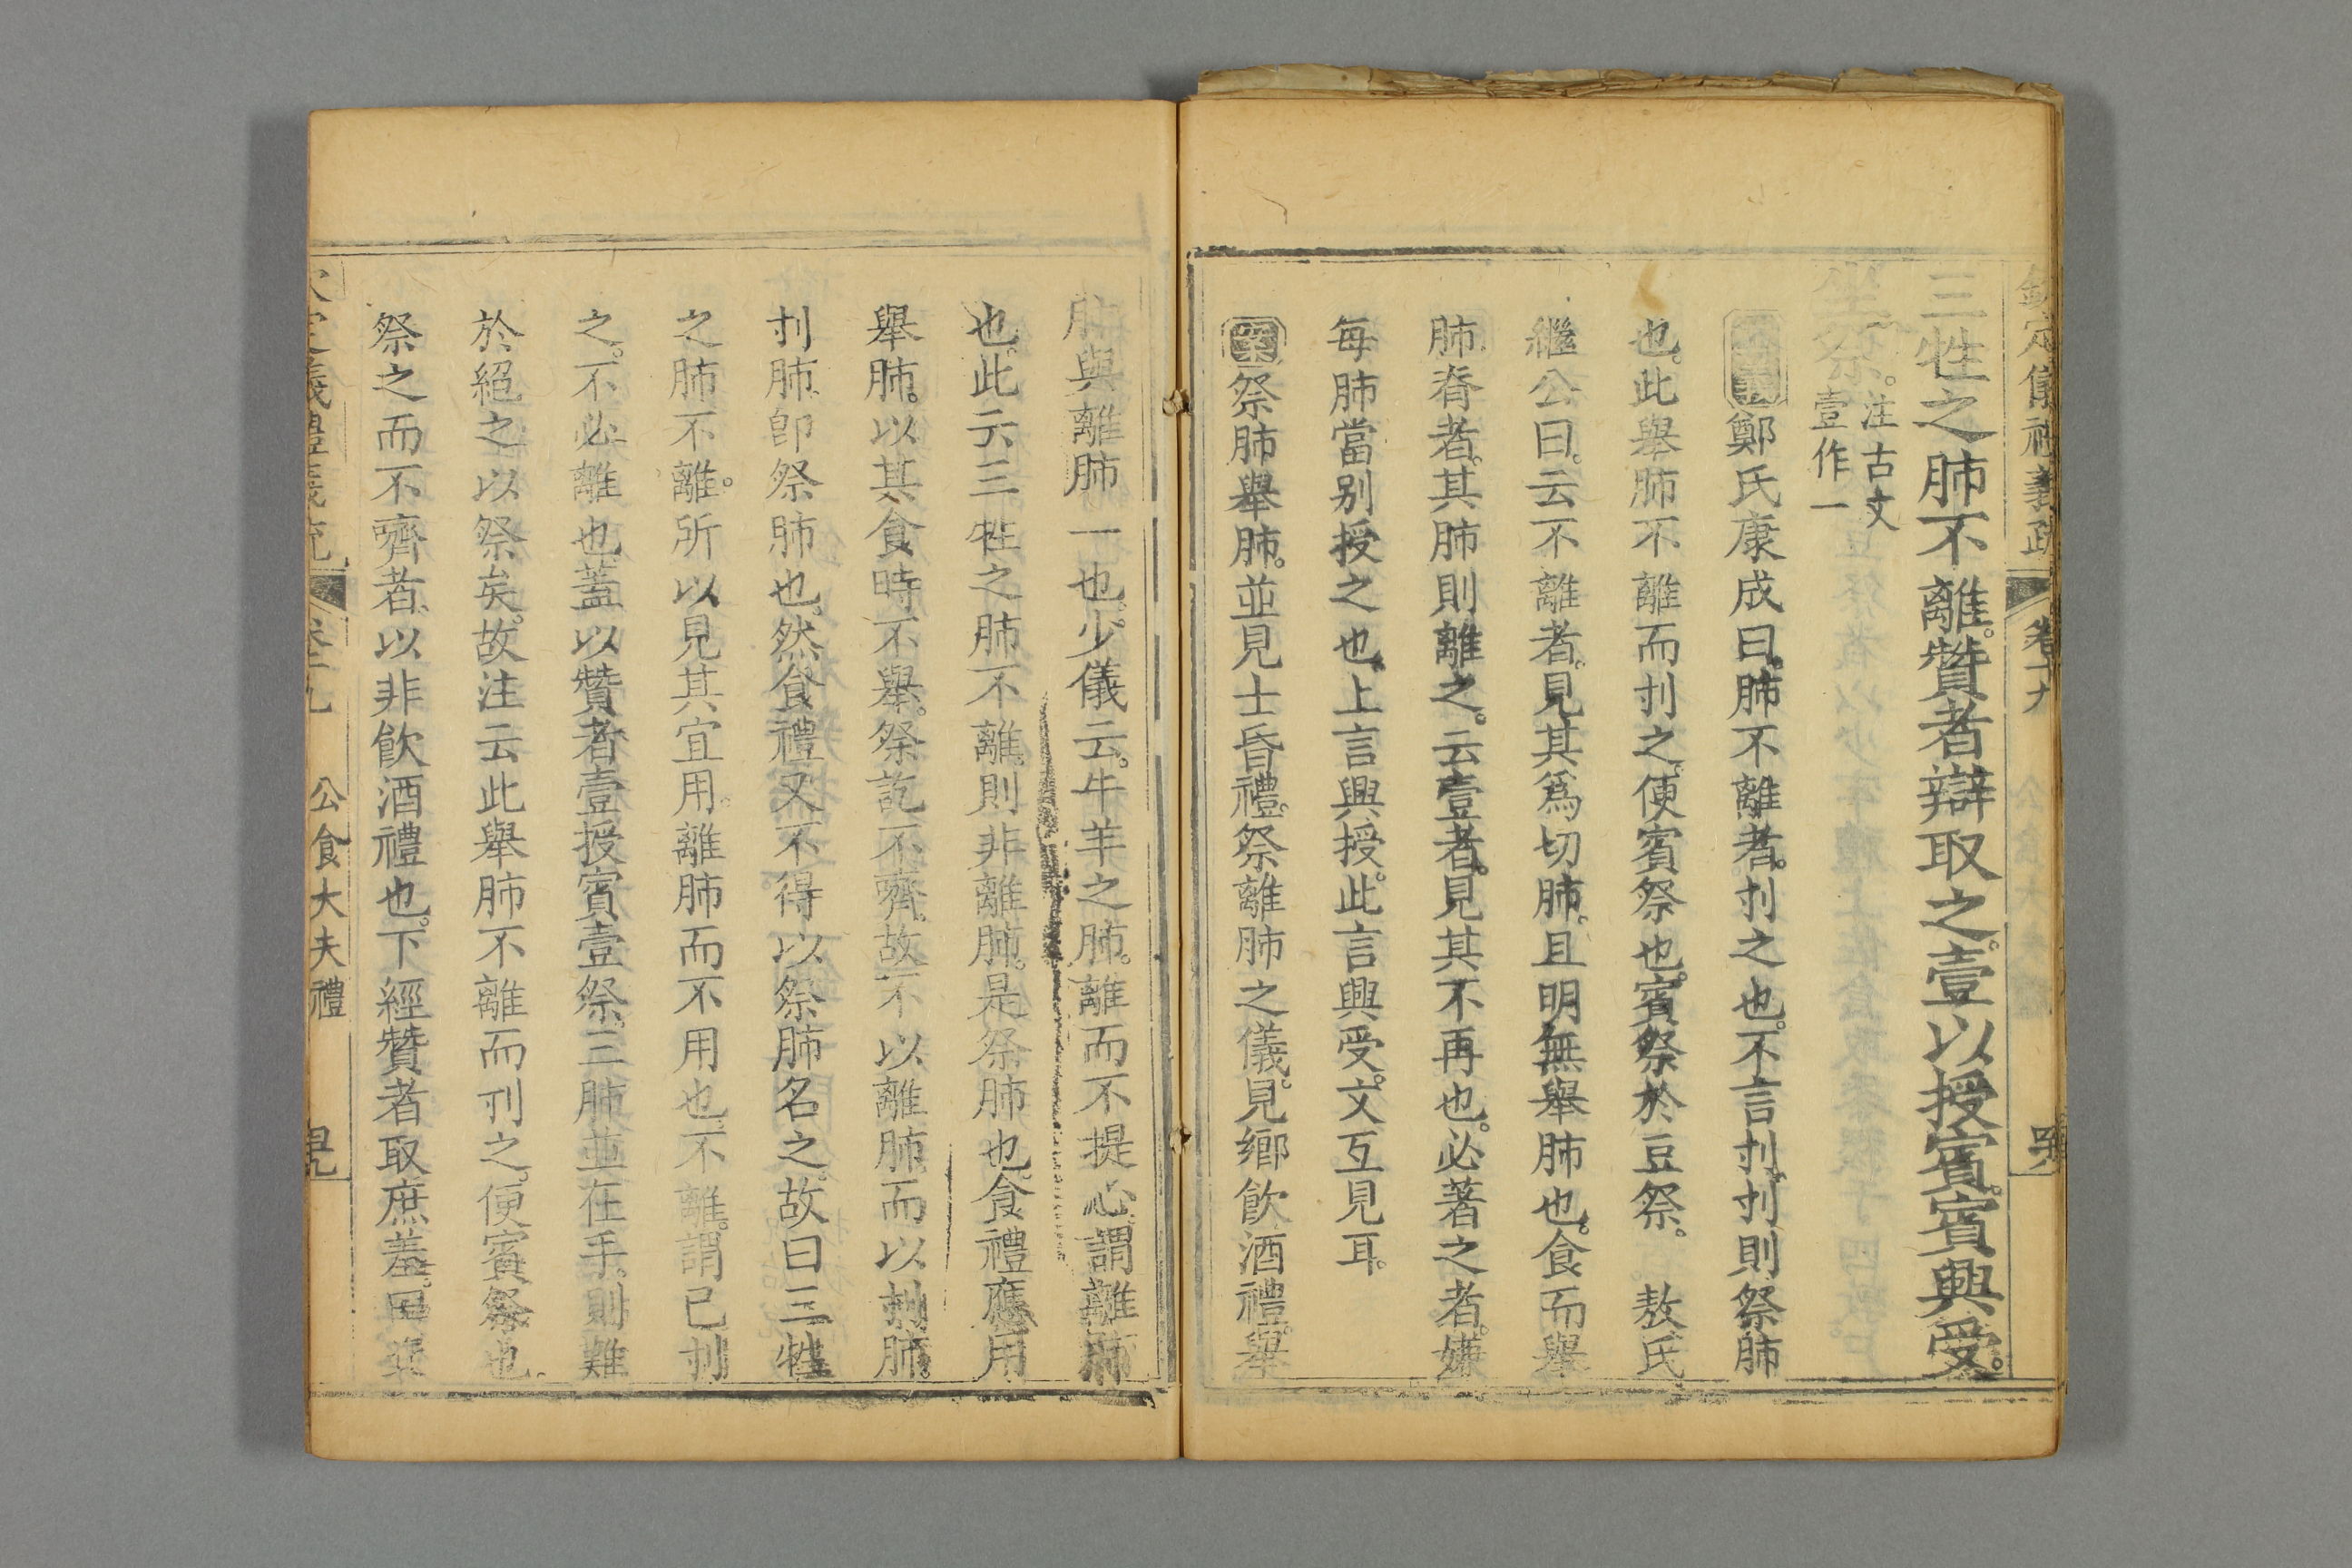 欽定儀禮義疏 卷十九
三牲之肺不離贊者辯取之壹以授賓賓興受
注古文
壹作一
鄭氏康成曰肺不離者刌之也不言刌刌則祭肺
也此舉肺不離而刌之便賓祭也賓祭於豆祭 敖氏
繼公曰云不離者見其爲切肺且明無舉肺也食而舉
肺脊者其肺則離之云壹者見其不再也必著之者嫌
每肺當别授之也上言興授此言興受文互見耳
案祭肺舉肺並見士昏禮祭離肺之儀見鄉飲酒禮舉
肺與離肺一也少儀云牛羊之肺離而不提心謂離肺
也此云三牲之肺不離則非離肺是祭肺也食禮應用
舉肺以其食時不舉祭訖不嚌故不以離肺而以刌肺
刌肺卽祭肺也然食禮又不得以祭肺名之故曰三牲
之肺不離所以見其宜用離肺而不用也不離謂已刌
之不必離也蓋以贊者壹授賓壹祭三肺並在手則難
於絕之以祭矣故注云此舉肺不離而刌之便賓祭也
祭之而不嚌者以非飲酒禮也下經贊者取庶羞
公食大夫禮